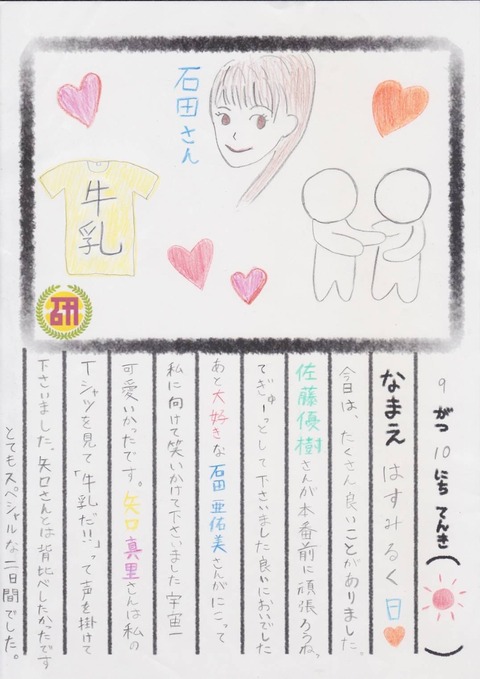 石田さん
牛乳
研
9 がつ 10 にち てんき( )
なまえ はすみるく 日
今日は、たくさん良いことがありました。
佐藤優樹さんが本番前に頑張ろうね。
てぎゅーっとして下さいました良いにおいでした
あと大好きな石田亜佑美さんがにこって
私に向けて笑いかけて下さいました宇宙一
可愛いかったです。矢口真里さんは私の
Tシャツを見て「牛乳だ!!」って声を掛けて
下さいました。矢口さんとは背比べしたかったです
とてもスペシャルな二日間でした。